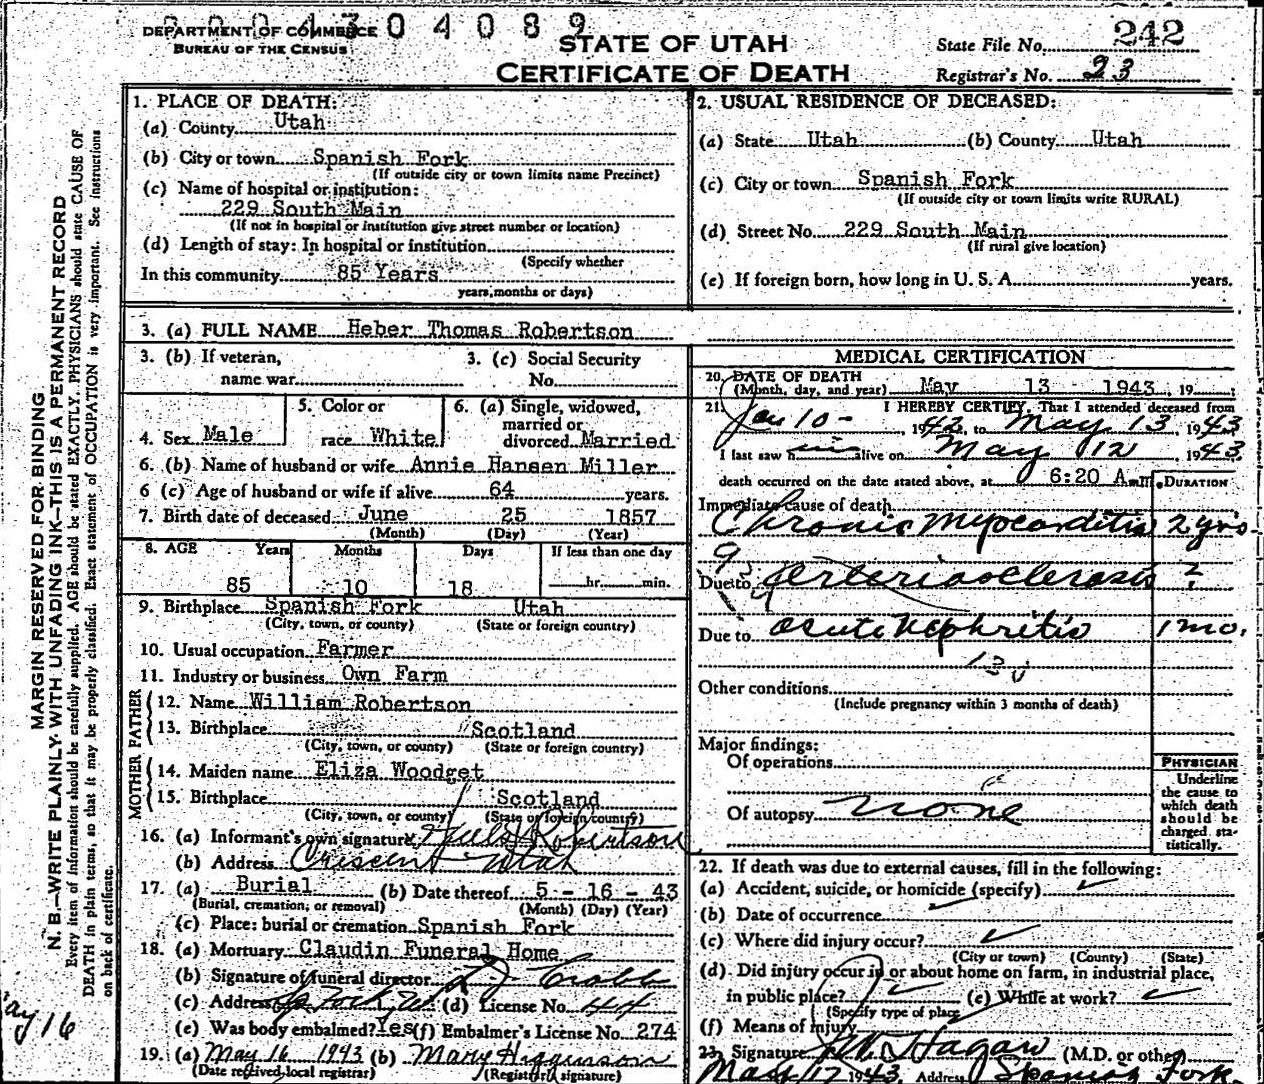 0004304089
DEPARTMENT OF COMMERCE
BUREAU OF THE CENSUS
STATE OF UTAH
CERTIFICATE OF DEATH
State File No. 242
Registrar's No. 23
MARGIN RESERVED FOR BINDING
N. B.—WRITE PLAINLY WITH UNFADING INK—THIS IS A PERMANENT RECORD
Every item of information should be carefully supplied. AGE should be stated EXACTLY. PHYSICIANS should state CAUSE OF
DEATH in plain terms, so that it may be properly classified. Exact statement of OCCUPATION is very important. See instructions
on back of certificate.
1. PLACE OF DEATH:
(a) County Utah
(b) City or town Spanish Fork
(If outside city or town limits name Precinct)
(c) Name of hospital or institution:
229 South Main
(If not in hospital or institution give street number or location)
(d) Length of stay: In hospital or institution
(Specify whether
In this community 85 Years
years, months or days)
2. USUAL RESIDENCE OF DECEASED:
(a) State Utah (b) County Utah
(c) City or town Spanish Fork
(If outside city or town limits write RURAL)
(d) Street No. 229 South Main
(If rural give location)
(e) If foreign born, how long in U. S. A. years.
3. (a) FULL NAME Heber Thomas Robertson
3. (b) If veteran,
name war
3. (c) Social Security
No.
4. Sex Male
5. Color or
race White
6. (a) Single, widowed,
married or
divorced Married
6. (b) Name of husband or wife Annie Hansen Miller
6 (c) Age of husband or wife if alive 64 years.
7. Birth date of deceased June 25 1857
(Month) (Day) (Year)
8. AGE Years Months Days If less than one day
85 10 18 hr. min.
9. Birthplace Spanish Fork Utah
(City, town, or county) (State or foreign country)
10. Usual occupation Farmer
11. Industry or business Own Farm
FATHER
12. Name William Robertson
13. Birthplace Scotland
(City, town, or county) (State or foreign country)
MOTHER
14. Maiden name Eliza Woodget
15. Birthplace Scotland
(City, town, or county) (State or foreign country)
16. (a) Informant's own signature Robertson
(b) Address Crescent Utah
17. (a) Burial (b) Date thereof 5 - 16 - 43
(Burial, cremation, or removal) (Month) (Day) (Year)
(c) Place: burial or cremation Spanish Fork
18. (a) Mortuary Claudin Funeral Home
(b) Signature of funeral director
(c) Address (d) License No. 444
(e) Was body embalmed? Yes (f) Embalmer's License No. 274
19. (a) May 16 1943 (b) Mary Higginson
(Date received local registrar) (Registrar's signature)
May 16
MEDICAL CERTIFICATION
20. DATE OF DEATH
(Month, day, and year) May 13 1943, 19
21. I HEREBY CERTIFY, That I attended deceased from
Jan 10 - , 1942, to May 13, 1943
I last saw him alive on May 12, 1943
death occurred on the date stated above, at 6:20 A m.
DURATION
Immediate cause of death
Chronic Myocarditis 2 yrs.
Due to Arteriosclerosis ?
Due to acute Nephritis 1 mo.
130
Other conditions
(Include pregnancy within 3 months of death)
Major findings:
Of operations
Of autopsy none
PHYSICIAN
Underline
the cause to
which death
should be
charged sta-
tistically.
22. If death was due to external causes, fill in the following:
(a) Accident, suicide, or homicide (specify)
(b) Date of occurrence
(c) Where did injury occur?
(City or town) (County) (State)
(d) Did injury occur in or about home on farm, in industrial place,
in public place? (e) While at work?
(Specify type of place)
(f) Means of injury
23. Signature Hagan (M.D. or other)
1943 Address Spanish Fork